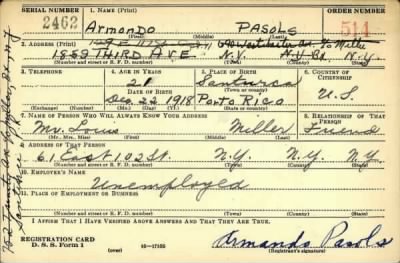 SERIAL NUMBER
1. NAME (Print)
ORDER NUMBER
2462
Armondo PASOLS
511
(First) (Middle) (Last)
2. ADDRESS (Print)
1859 THIRD AVE. N.Y. N.Y. N.Y.
(Number and street or R. F. D. number) (Town) (County) (State)
3. TELEPHONE
4. AGE IN YEARS
5. PLACE OF BIRTH
6. COUNTRY OF CITIZENSHIP
21
Santurce
DATE OF BIRTH
(Town or county)
Dec. 22 1918
Porto Rico
U.S.
(Exchange) (Number)
(Mo.) (Day) (Yr.)
(State or country)
7. NAME OF PERSON WHO WILL ALWAYS KNOW YOUR ADDRESS
8. RELATIONSHIP OF THAT PERSON
Mr. Louis Miller Friend
(Mr., Mrs., Miss) (First) (Middle) (Last)
9. ADDRESS OF THAT PERSON
61 East 102 St. N.Y. N.Y. N.Y.
(Number and street or R. F. D. number) (Town) (County) (State)
10. EMPLOYER'S NAME
Unemployed
11. PLACE OF EMPLOYMENT OR BUSINESS
(Number and street or R. F. D. number) (Town) (County) (State)
I AFFIRM THAT I HAVE VERIFIED ABOVE ANSWERS AND THAT THEY ARE TRUE.
REGISTRATION CARD
D. S. S. Form 1
(over)
16-17105
Armando Pasols
(Registrant's signature)